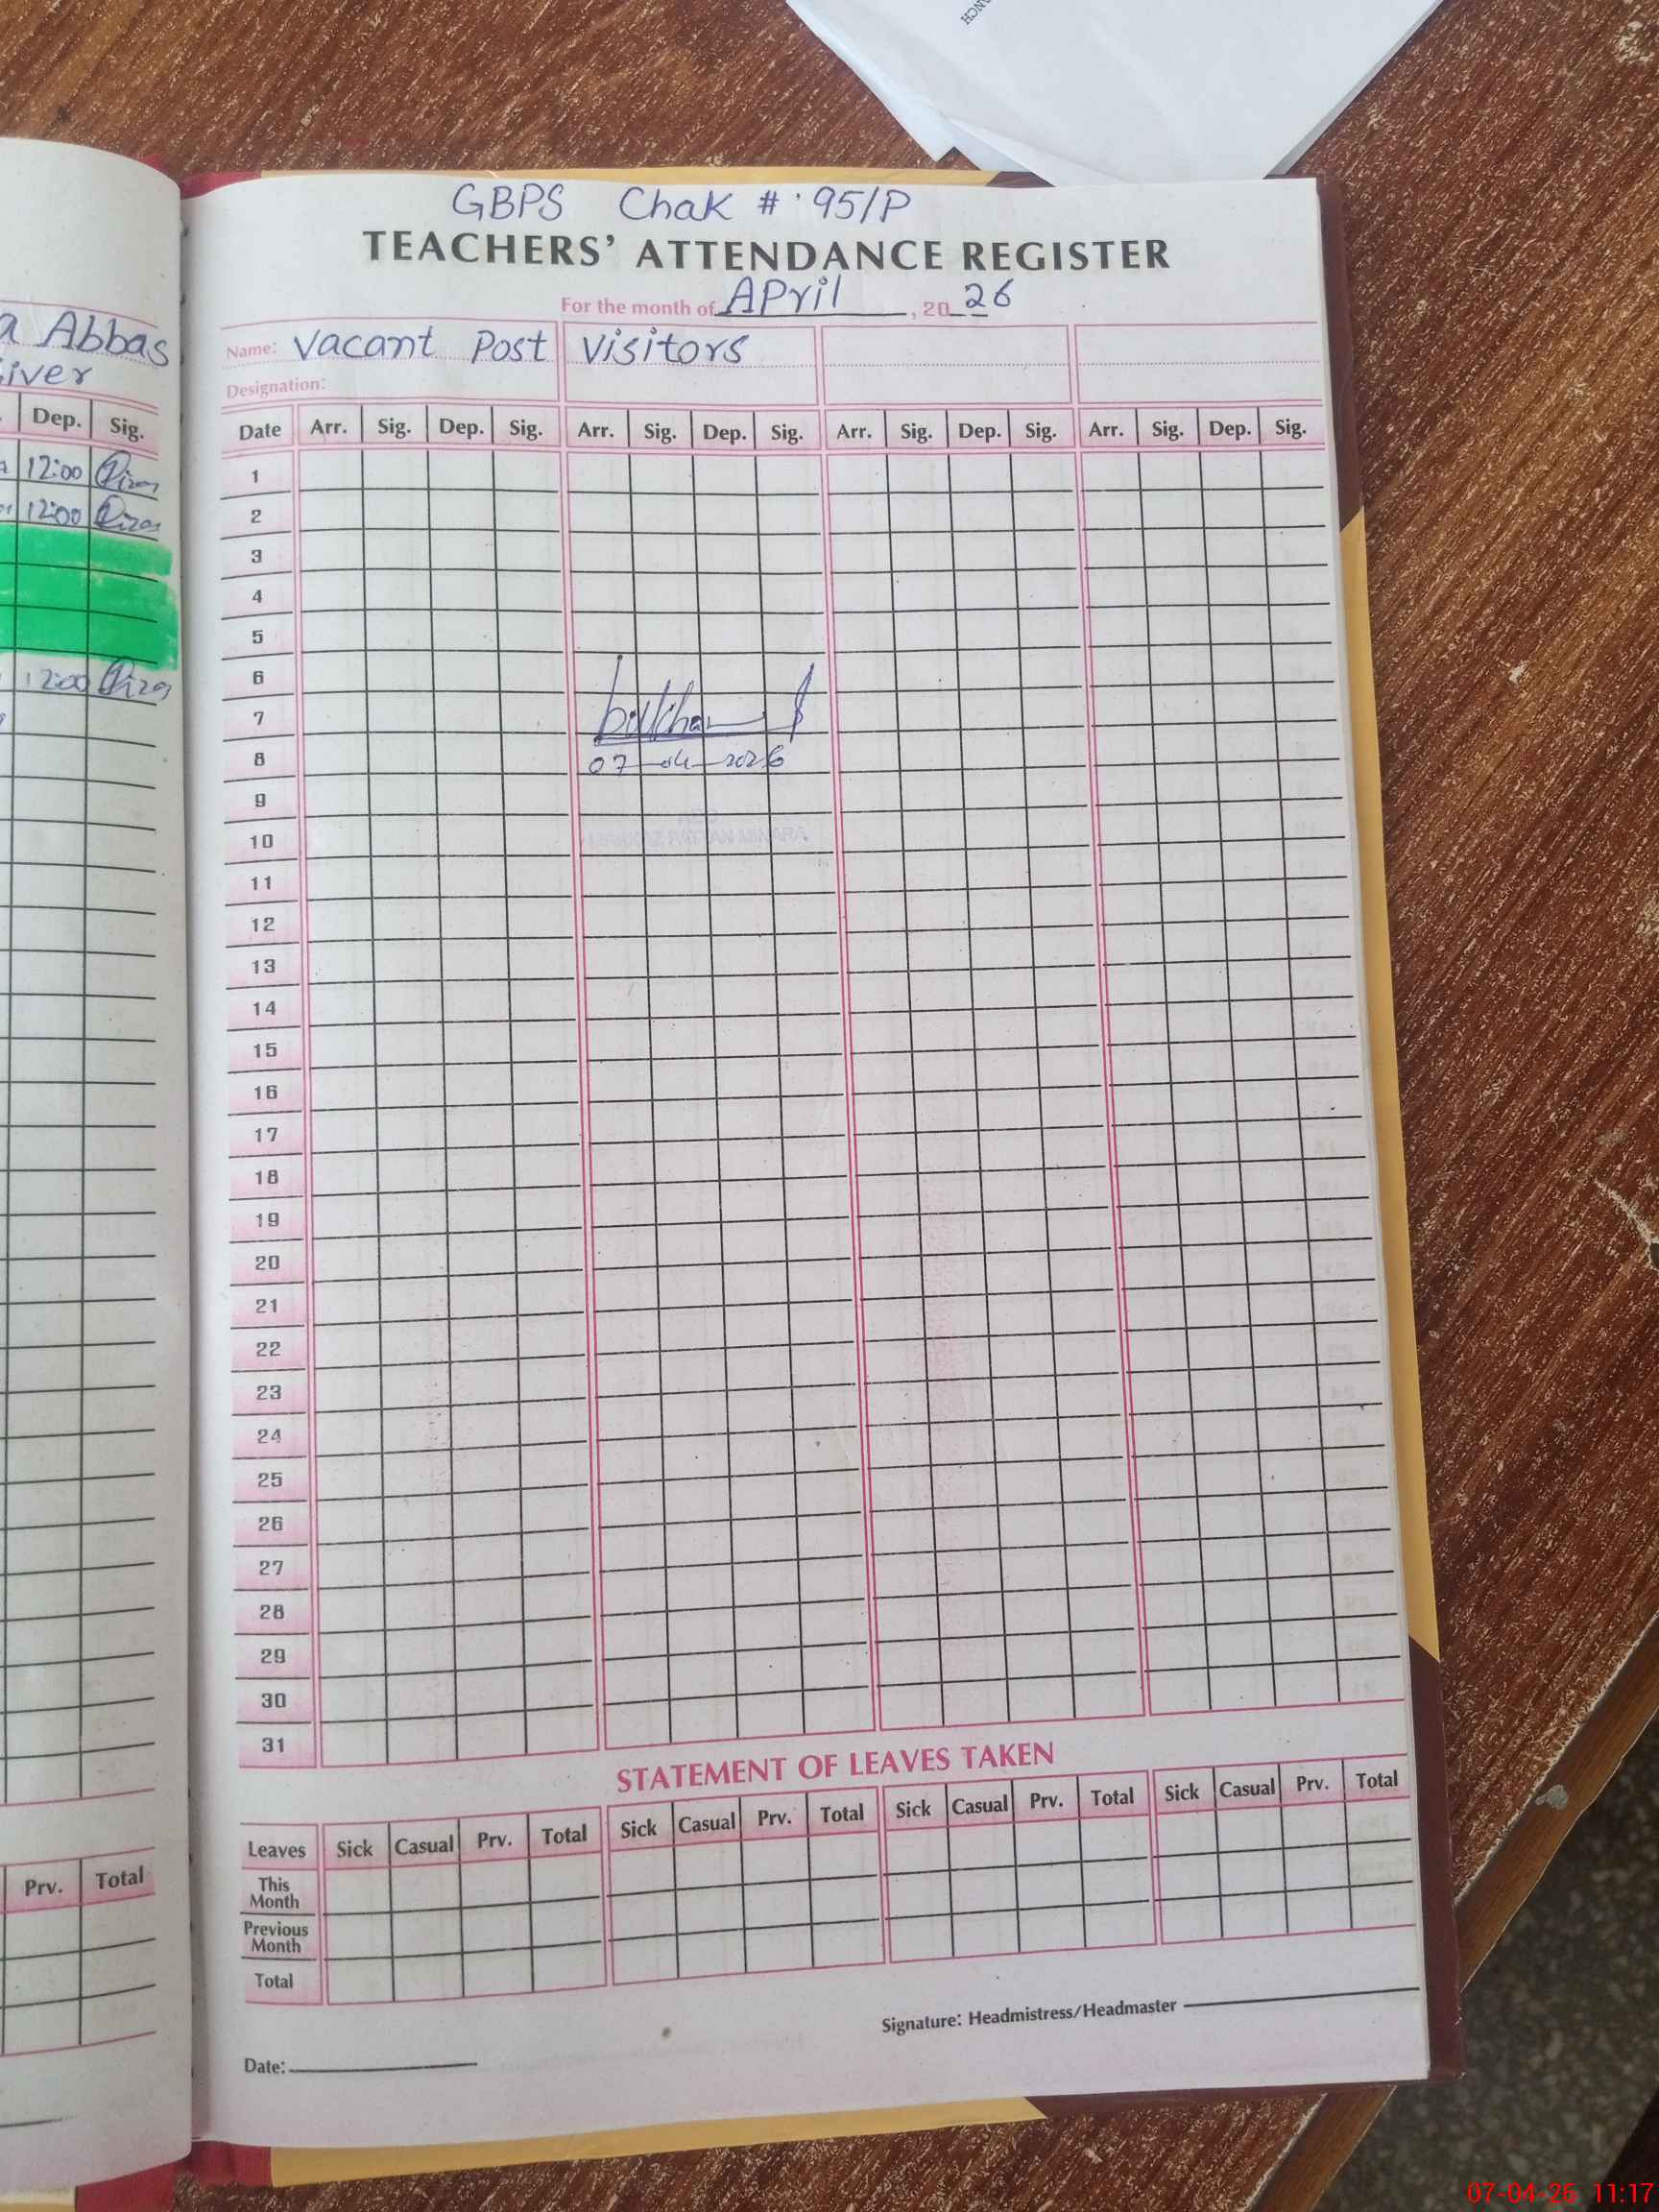 ONCH
a Abbas
iver
Dep. Sig.
12:00
12:00
12:00
Prv. Total
GBPS Chak # 95/P
TEACHERS' ATTENDANCE REGISTER
For the month of April, 2026
Name: Vacant Post Visitors
Designation:
Date Arr. Sig. Dep. Sig. Arr. Sig. Dep. Sig. Arr. Sig. Dep. Sig. Arr. Sig. Dep. Sig.
1
2
3
4
5
6
7
8 07-04-2026
9
10
11
12
13
14
15
16
17
18
19
20
21
22
23
24
25
26
27
28
29
30
31
STATEMENT OF LEAVES TAKEN
Leaves Sick Casual Prv. Total Sick Casual Prv. Total Sick Casual Prv. Total Sick Casual Prv. Total
This Month
Previous Month
Total
Signature: Headmistress/Headmaster
Date:
07-04-26 11:17